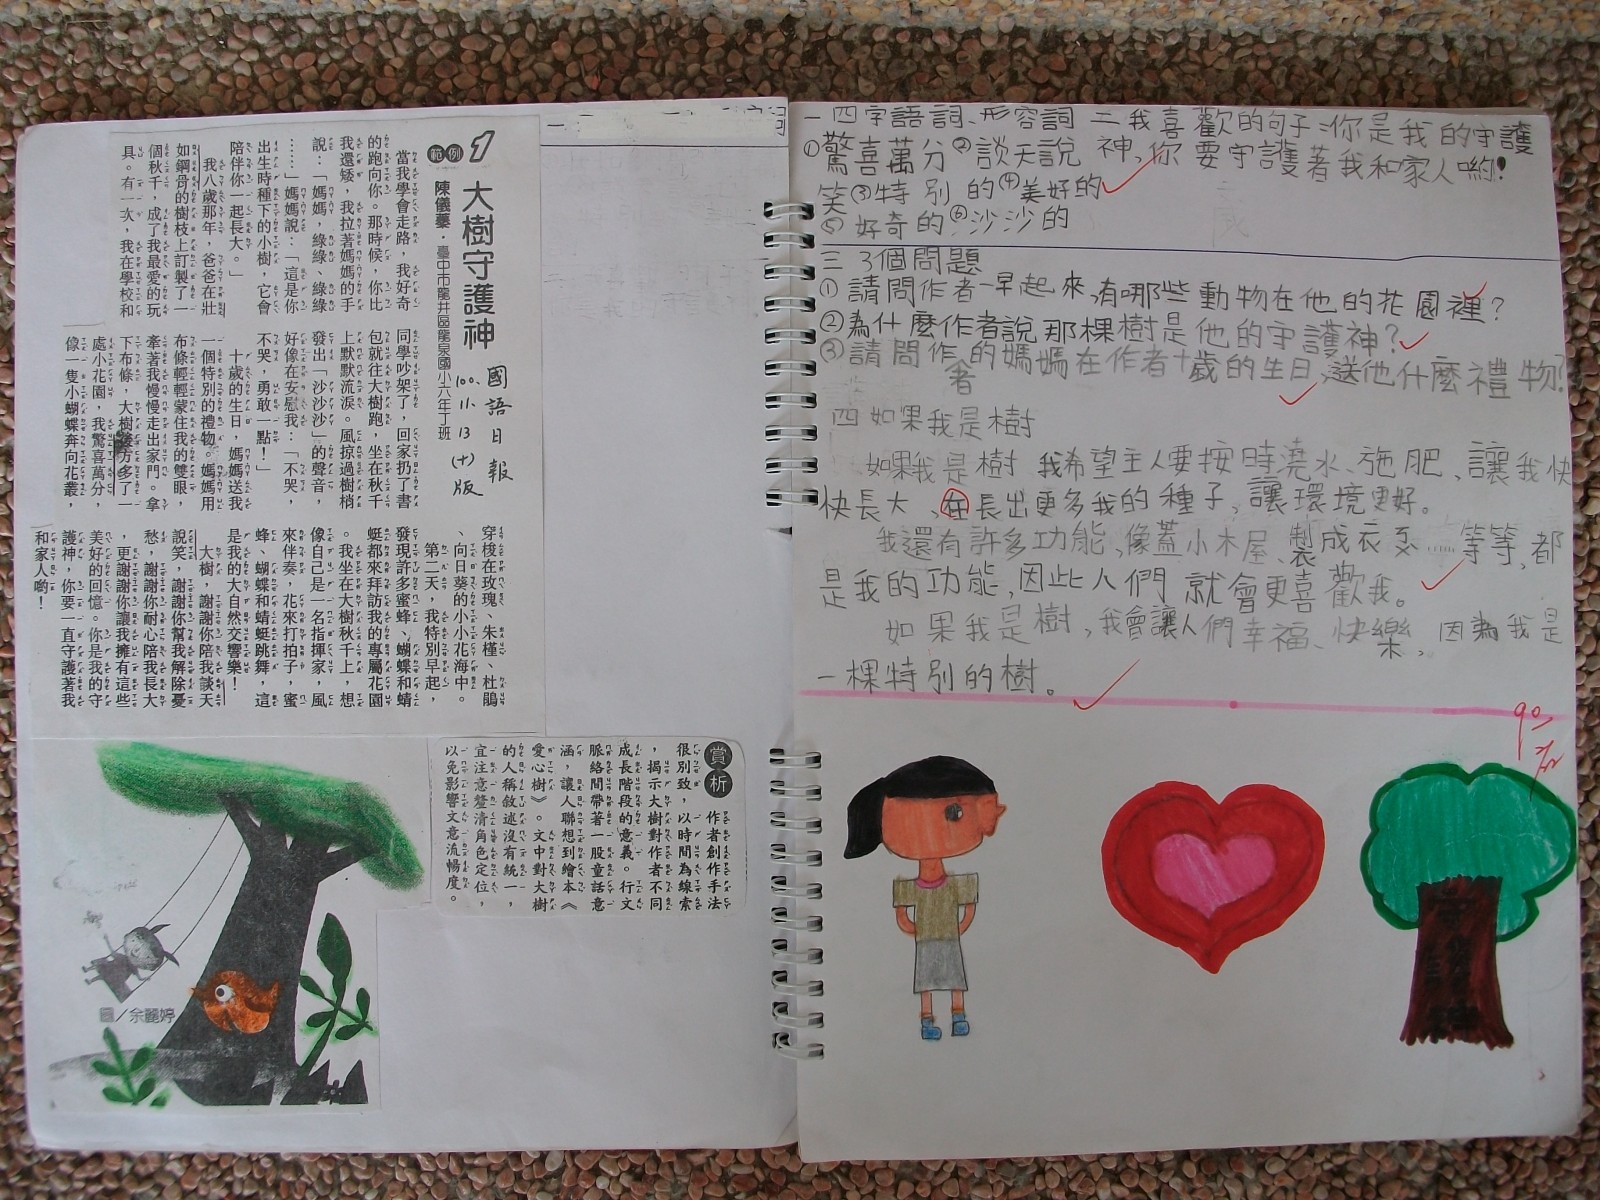 1
範例
大樹守護神
陳儀蓁・臺中市龍井區龍泉國小六年丁班
國語日報
100.11.13(十)版
當我學會走路,我好奇
的跑向你。那時候,你比
我還矮,我拉著媽媽的手
說:「媽媽,綠綠、綠綠
……」媽媽說:「這是你
出生時種下的小樹,它會
陪伴你一起長大。」
我八歲那年,爸爸在壯
如鋼骨的樹枝上訂製了一
個秋千,成了我最愛的玩
具。有一次,我在學校和
同學吵架了,回家扔了書
包就往大樹跑,坐在秋千
上默默流淚。風掠過樹梢
發出「沙沙沙」的聲音,
好像在安慰我:「不哭,
不哭,勇敢一點!」
十歲的生日,媽媽送我
一個特別的禮物。媽媽用
布條輕輕蒙住我的雙眼,
牽著我慢慢走出家門。拿
下布條,大樹後方多了一
處小花園,我驚喜萬分,
像一隻小蝴蝶奔向花叢,
穿梭在玫瑰、朱槿、杜鵑
、向日葵的小小花海中。
第二天,我特別早起,
發現許多蜜蜂、蝴蝶和蜻
蜓都來拜訪我的專屬花園
。我坐在大樹秋千上,想
像自己是一名指揮家,風
來伴奏,花來打拍子,蜜
蜂、蝴蝶和蜻蜓跳舞,這
是我的大自然交響樂!
大樹,謝謝你陪我談天
說笑,謝謝你幫我解除憂
愁,謝謝你耐心陪我長大
,更謝謝你讓我擁有這些
美好的回憶。你是我的守
護神,你要一直守護著我
和家人喲!
賞析
作者創作手法
很別致,以時間為線索
,揭示大樹對作者不同
成長階段的意義。行文
脈絡間帶著一股童話意
涵,讓人聯想到繪本《
愛心樹》。文中對大樹
的人稱敘述沒有統一,
宜注意釐清角色定位,
以免影響文意流暢度。
圖/余麗婷
一四字語詞、形容詞
①驚喜萬分②談天說
笑③特別的④美好的
⑤好奇的⑥沙沙的
二我喜歡的句子:你是我的守護
神,你要守護著我和家人喲!
三 3個問題
①請問作者一早起來,有哪些動物在他的花園裡?
②為什麼作者說那棵樹是他的守護神?
③請問作者的媽媽在作者十歲的生日,送他什麼禮物?
四如果我是樹
如果我是樹,我希望主人要按時澆水、施肥,讓我快
快長大,在長出更多我的種子,讓環境更好。
我還有許多功能,像蓋小木屋、製成衣……等等,都
是我的功能,因此人們就會更喜歡我。
如果我是樹,我會讓人們幸福、快樂,因為我是
一棵特別的樹。
90